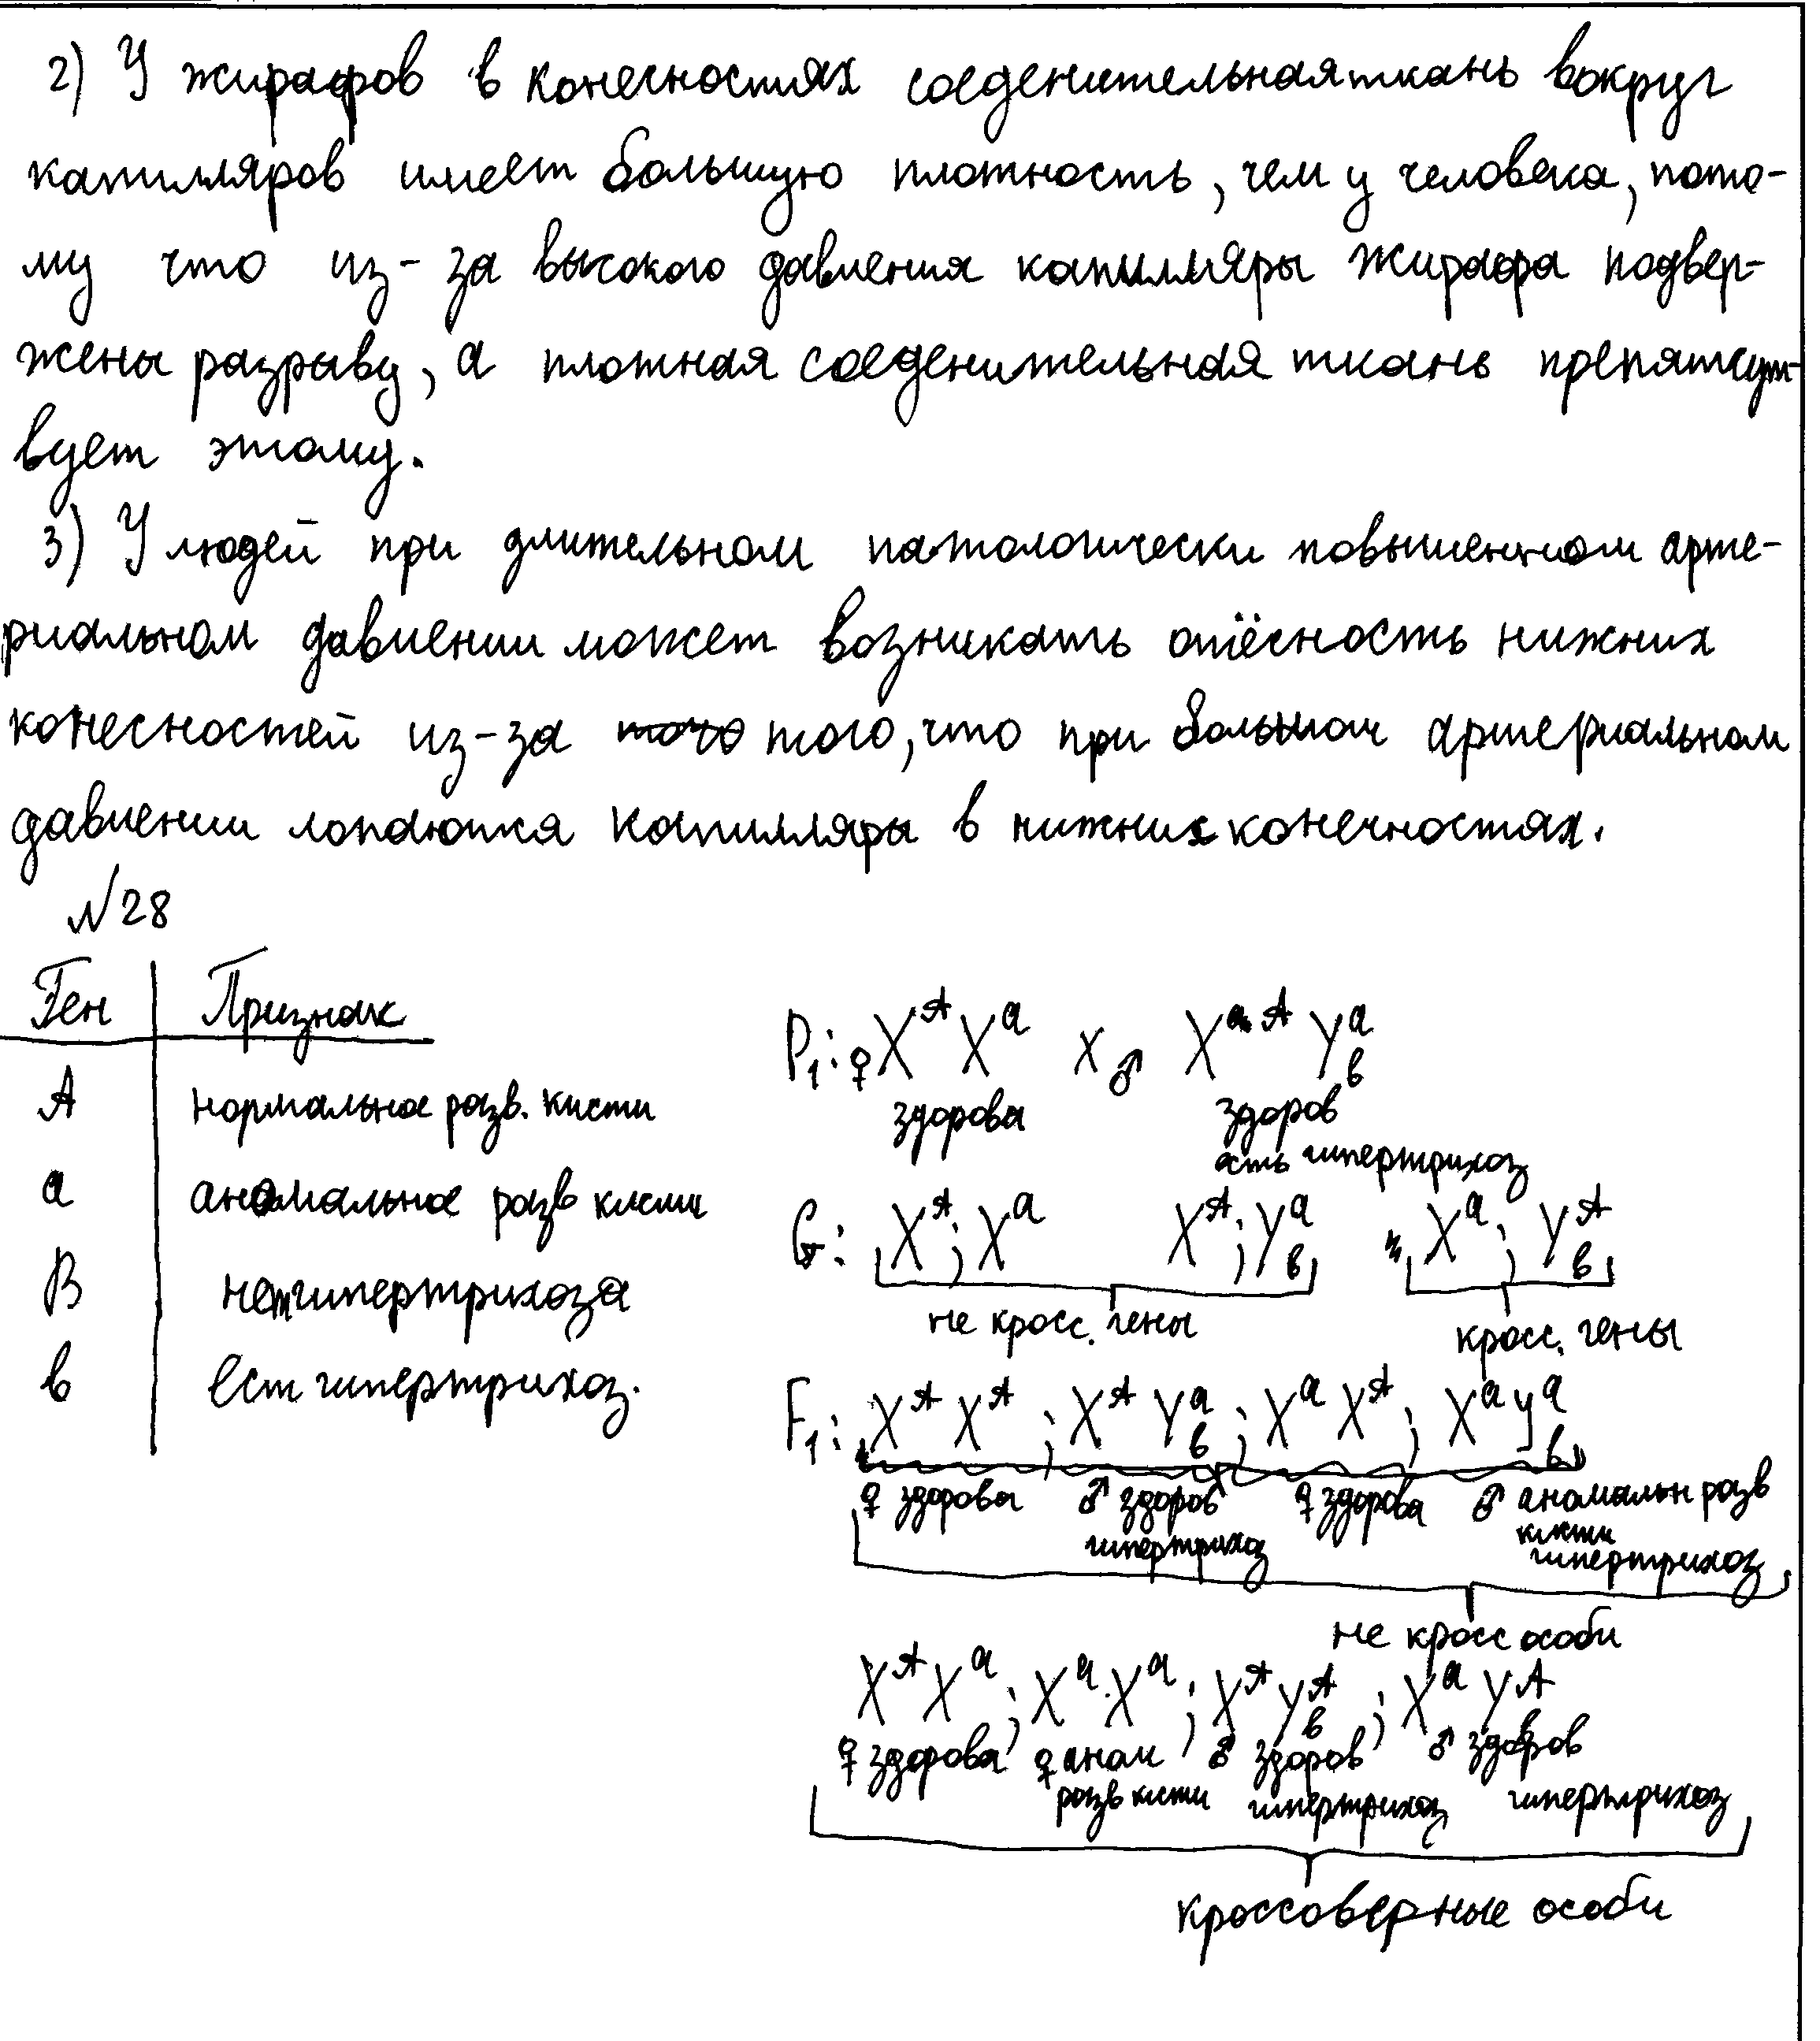 2) У жирафов в конесностях соеденительная ткань вокруг
капилляров имеет большую плотность, чем у человека, пото-
му что из-за высокого давления капилляры жирафа подвер-
жены разрыву, а плотная соеденительная ткань препятсут-
вует этому.
3) У людей при длительном патологически повышенном арте-
риальном давлении может возникать отёсность нижних
конесностей из-за того, что при большом артериальном
давлении лопаются капилляры в нижних конечностях.
№28
Ген | Признак
A | нормальное разв. кисти
a | аномальное разв кисти
B | нет гипертрихоза
в | ест гипертрихоз.
P₁: ♀ X^A X^a x ♂ X^A Y^a_в
здорова здоров
есть гипертрихоз
G: X^A; X^a X^A; Y^a_в X^a; Y^A_в
не кросс. гены кросс. гены
F₁: X^A X^A; X^A Y^a_в; X^a X^A; X^a Y^a_в
♀ здорова ♂ здоров ♀ здорова ♂ аномальн разв
гипертрихоз кисти
гипертрихоз
не кросс особи
X^A X^a; X^a X^a; X^A Y^A_в; X^a Y^A_в
♀ здорова ♀ аном ♂ здоров ♂ здоров
разв кисти гипертрихоз гипертрихоз
кроссоверные особи